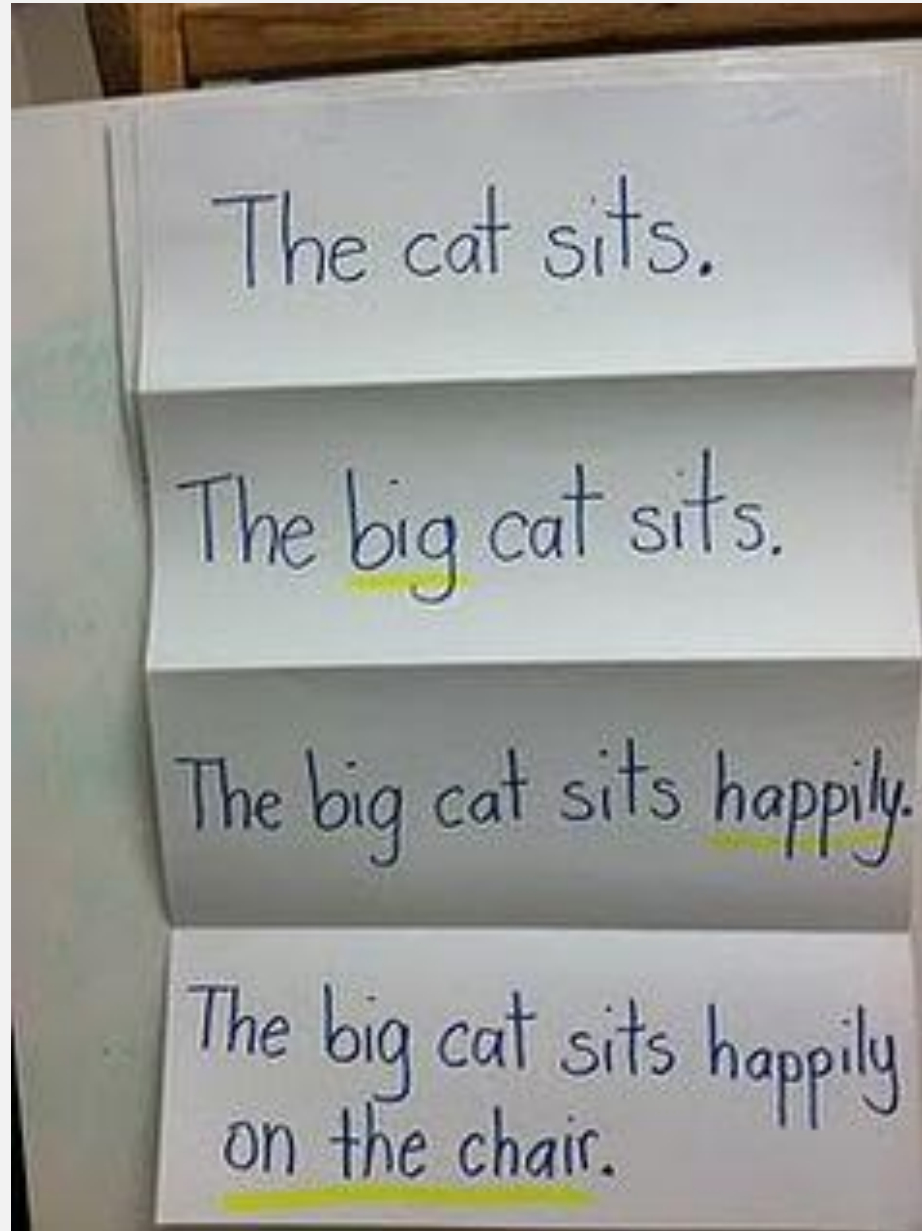 The cat sits.
The big cat sits.
The big cat sits happily.
The big cat sits happily
on the chair.